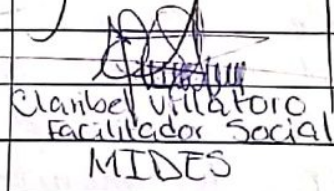 Claribel Villatoro
Facilitador Social
MIDES